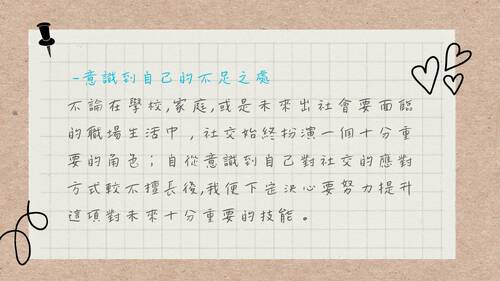 -意識到自己的不足之處
不論在學校,家庭,或是未來出社會要面臨
的職場生活中，社交始終扮演一個十分重
要的角色；自從意識到自己對社交的應對
方式較不擅長後,我便下定決心要努力提升
這項對未來十分重要的技能。